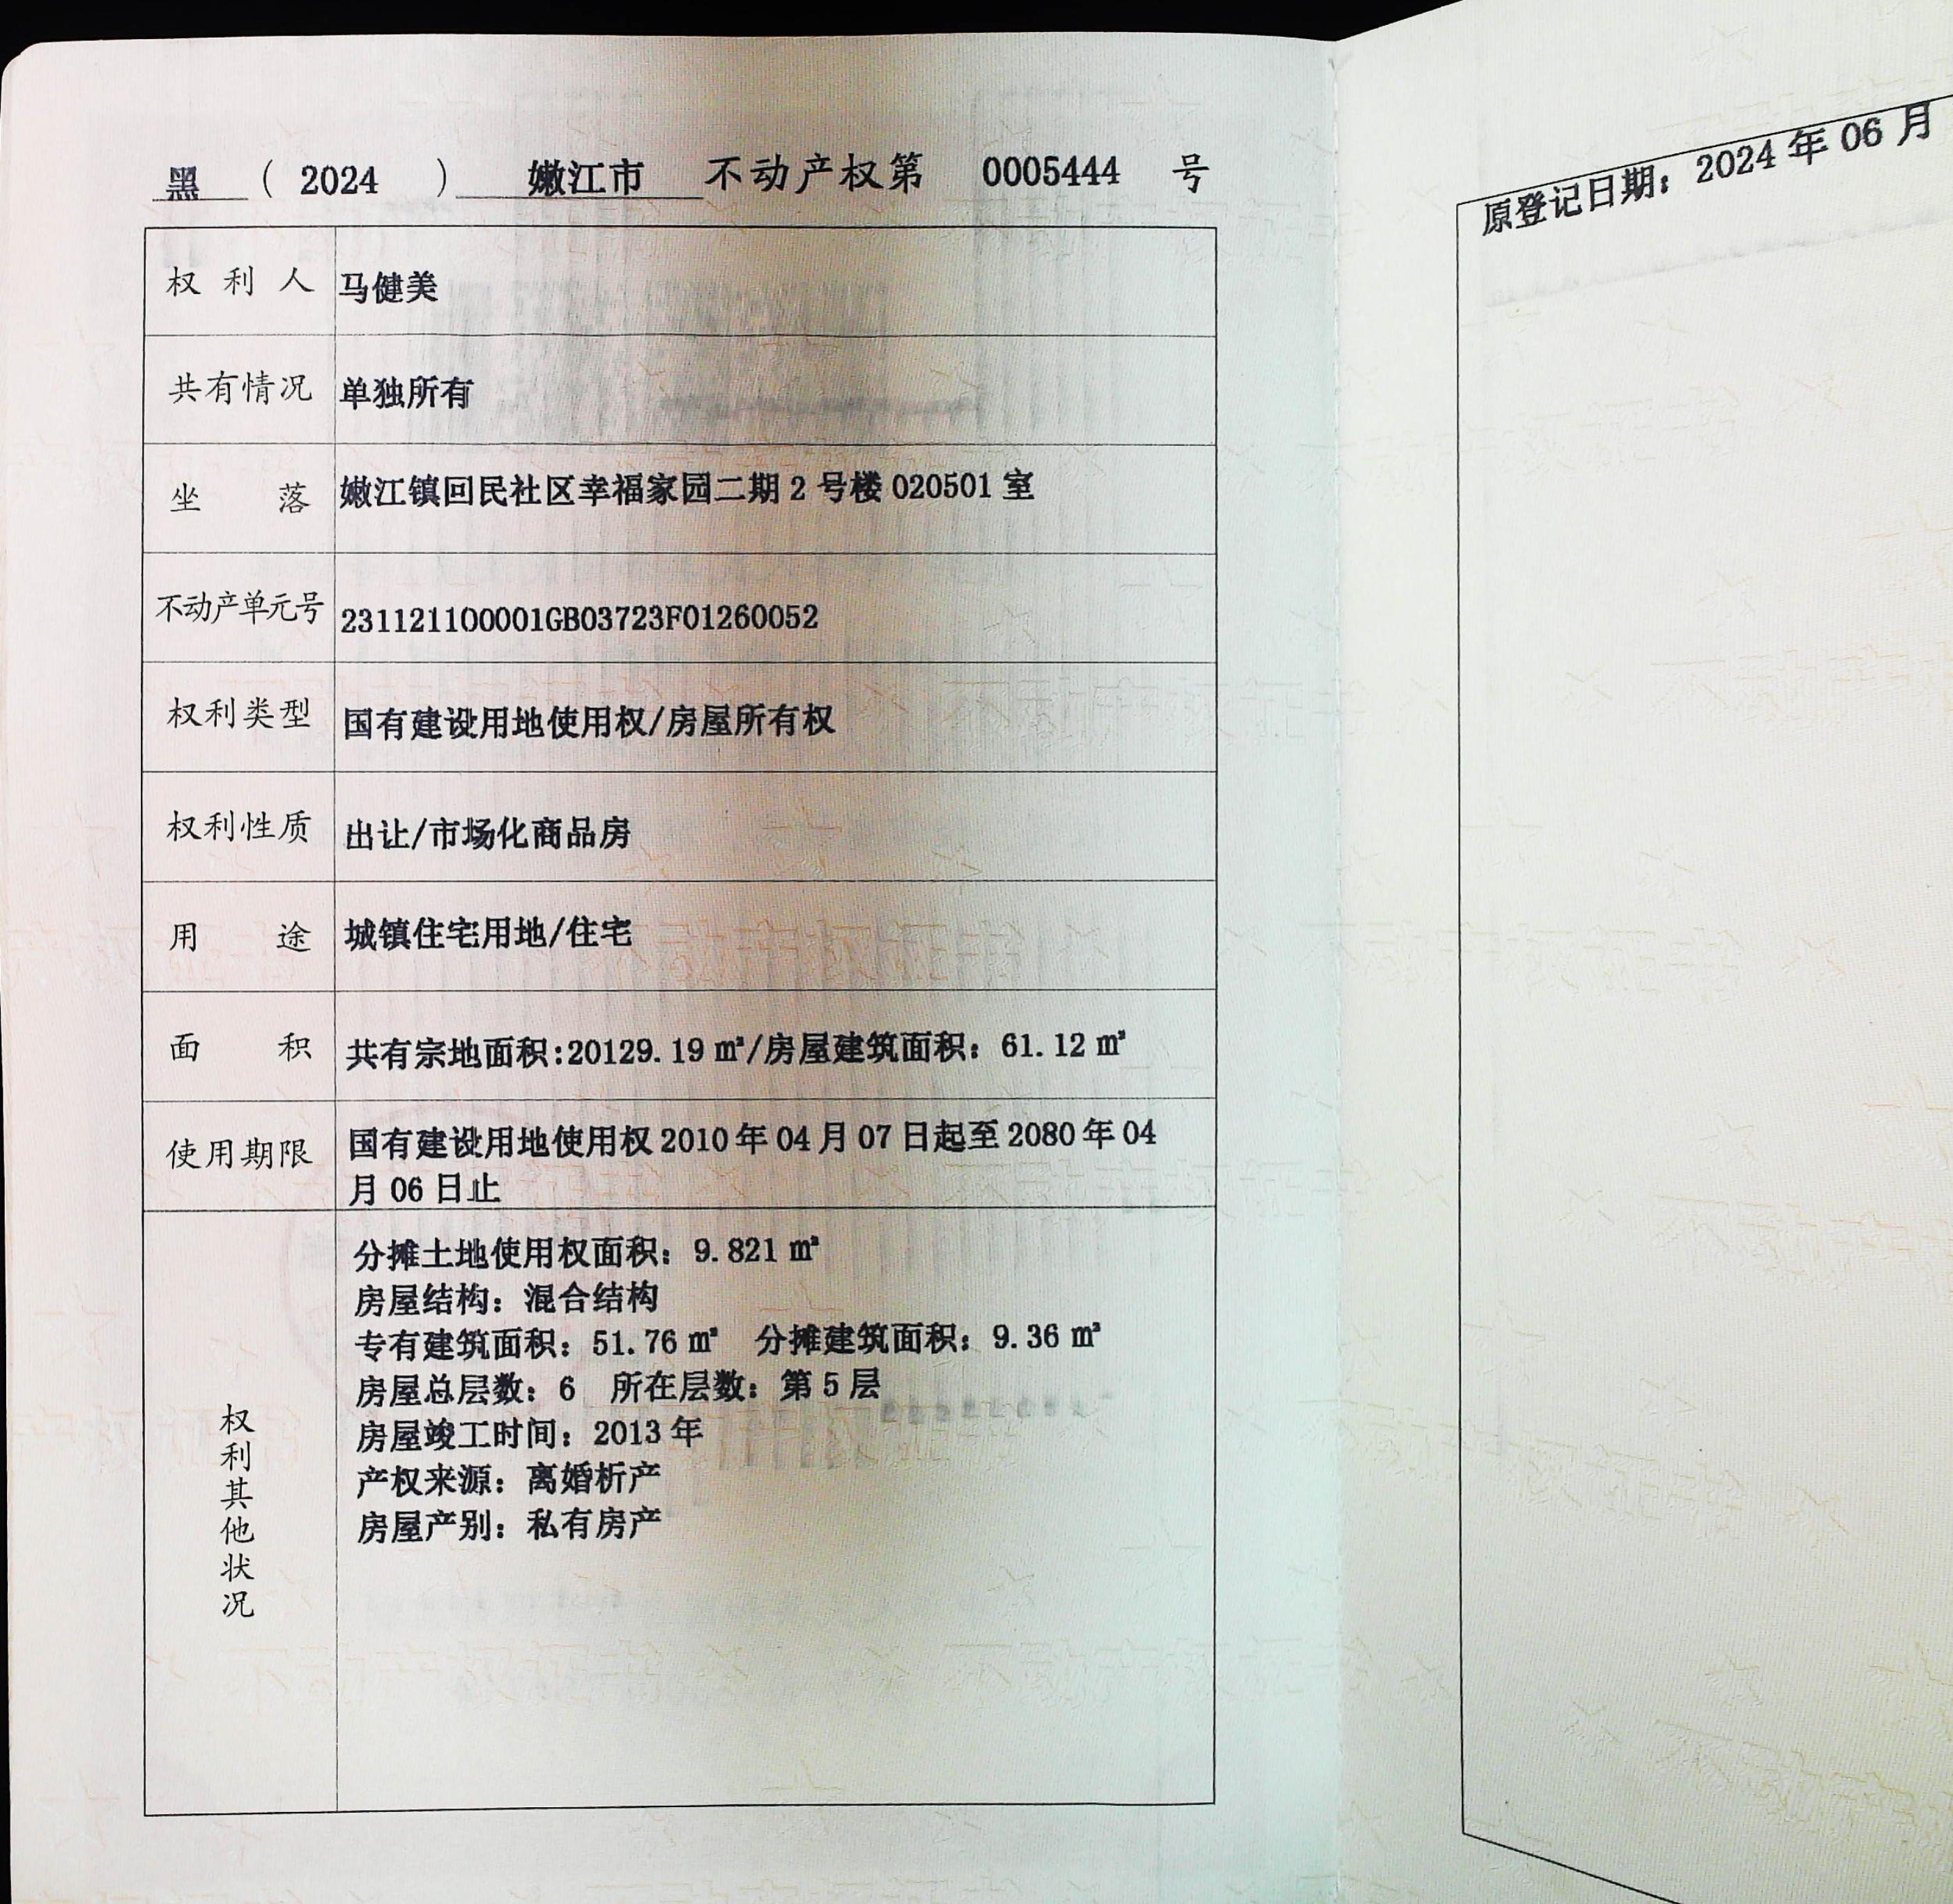 黑 （ 2024 ） 嫩江市 不动产权第 0005444 号
权利人 马健美
共有情况 单独所有
坐落 嫩江镇回民社区幸福家园二期 2 号楼 020501 室
不动产单元号 231121100001GB03723F01260052
权利类型 国有建设用地使用权/房屋所有权
权利性质 出让/市场化商品房
用途 城镇住宅用地/住宅
面积 共有宗地面积:20129.19 ㎡/房屋建筑面积：61.12 ㎡
使用期限 国有建设用地使用权 2010 年 04 月 07 日起至 2080 年 04
月 06 日止
权利其他状况
分摊土地使用权面积：9.821 ㎡
房屋结构：混合结构
专有建筑面积：51.76 ㎡ 分摊建筑面积：9.36 ㎡
房屋总层数：6 所在层数：第 5 层
房屋竣工时间：2013 年
产权来源：离婚析产
房屋产别：私有房产
原登记日期：2024 年 06 月